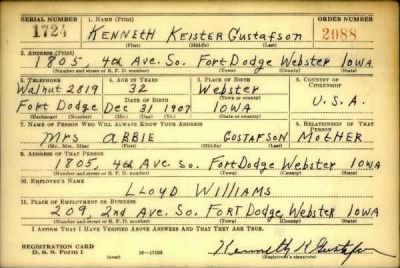 SERIAL NUMBER 1. NAME (Print) ORDER NUMBER
1724 KENNETH KEISTER Gustafson 2088
(First) (Middle) (Last)
2. ADDRESS (Print)
1805, 4th Ave. So. Fort Dodge Webster Iowa
(Number and street or R. F. D. number) (Town) (County) (State)
3. TELEPHONE 4. AGE IN YEARS 5. PLACE OF BIRTH 6. COUNTRY OF CITIZENSHIP
Walnut 2819 32 Webster
DATE OF BIRTH (Town or county) U.S.A.
Fort Dodge Dec 31 1907 IOWA
(Exchange) (Number) (Mo.) (Day) (Yr.) (State or country)
7. NAME OF PERSON WHO WILL ALWAYS KNOW YOUR ADDRESS 8. RELATIONSHIP OF THAT PERSON
Mrs ABBIE GUSTAFSON MOTHER
(Mr., Mrs., Miss) (First) (Middle) (Last)
9. ADDRESS OF THAT PERSON
1805, 4th Ave. So. Fort Dodge Webster Iowa
(Number and street or R. F. D. number) (Town) (County) (State)
10. EMPLOYER'S NAME
LLOYD WILLIAMS
11. PLACE OF EMPLOYMENT OR BUSINESS
209 2nd Ave. So. FORT Dodge, Webster IOWA
(Number and street or R. F. D. number) (Town) (County) (State)
I AFFIRM THAT I HAVE VERIFIED ABOVE ANSWERS AND THAT THEY ARE TRUE.
REGISTRATION CARD
D. S. S. Form 1 16—17105 Kenneth K Gustafson
(Registrant's signature)